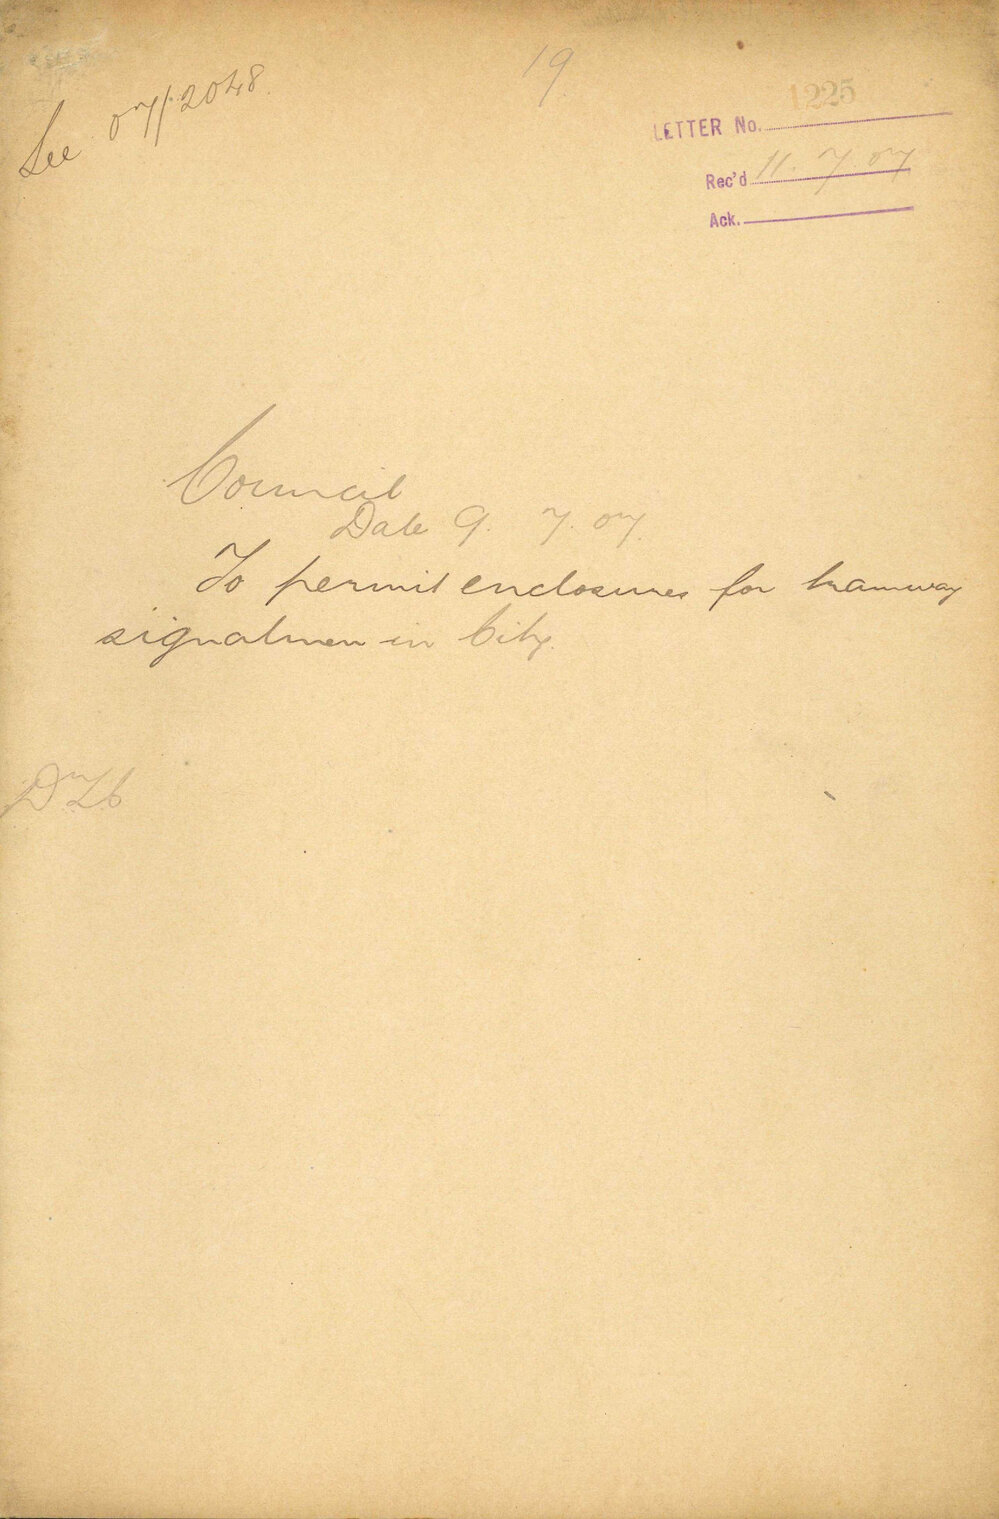 See 07/2048
19
1225
LETTER No.
Rec'd 11. 7. 07
Ack.
Council
Date 9. 7. 07.
To permit enclosures for tramway
signalmen in City.